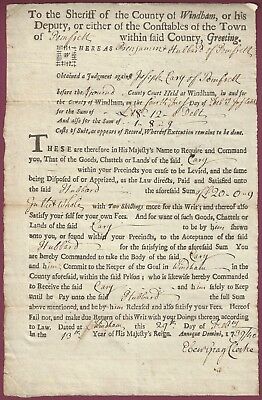 To the Sheriff of the County of Windham, or his
Deputy, or either of the Constables of the Town
of Pomfrett within said County, Greeting.
WHEREAS Benjamin Hubbard of Pomfrett
Obtained a Judgment against Joseph Cary of Pomfrett
before the County Court Held at Windham, in and for the
County of Windham, on the Day of
of £18=12= Debt
And also for the Sum of 1=8=9
Costs of Suit, as appears of Record, Whereof Execution remains to be done.
THESE are therefore in His Majesty's Name to Require and Command
you, That of the Goods, Chattels or Lands of the said Cary
within your Precincts you cause to be Levied, and the same
being Disposed of or Apprized, as the Law directs, Paid and Satisfied unto
the said Hubbard the aforesaid Sum of £20=0=9
In the whole with Two Shillings more for this Writ; and thereof also
Satisfy your self for your own Fees. And for want of such Goods, Chattels
or Lands of the said Cary to be by him shewn
unto you, or found within your Precincts, to the Acceptance of the said
Hubbard for the satisfying of the aforesaid Sum; You
are hereby Commanded to take the Body of the said Cary
and him Commit to the Keeper of the Goal in Windham in the
County aforesaid, within the said Prison; who is likewise hereby Commanded
to Receive the said Cary and him safely to Keep
until he Pay unto the said Hubbard the full Sum
above mentioned, and be by him Released and also satisfy your Fees. Hereof
Fail not, and make due Return of this Writ with your Doings thereon according
to Law. Dated at Windham this 29th Day of Feb'ry in the
13th Year of His Majesty's Reign. Annoque Domini, 1739/40
Eleazr Cary Clerk